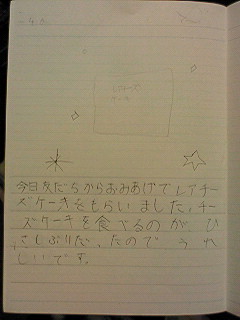 今日友だちからおみあげでレアチー
ズケーキをもらいました。チー
ズケーキを食べるのがひ
さしぶりだったのでうれ
しいです。